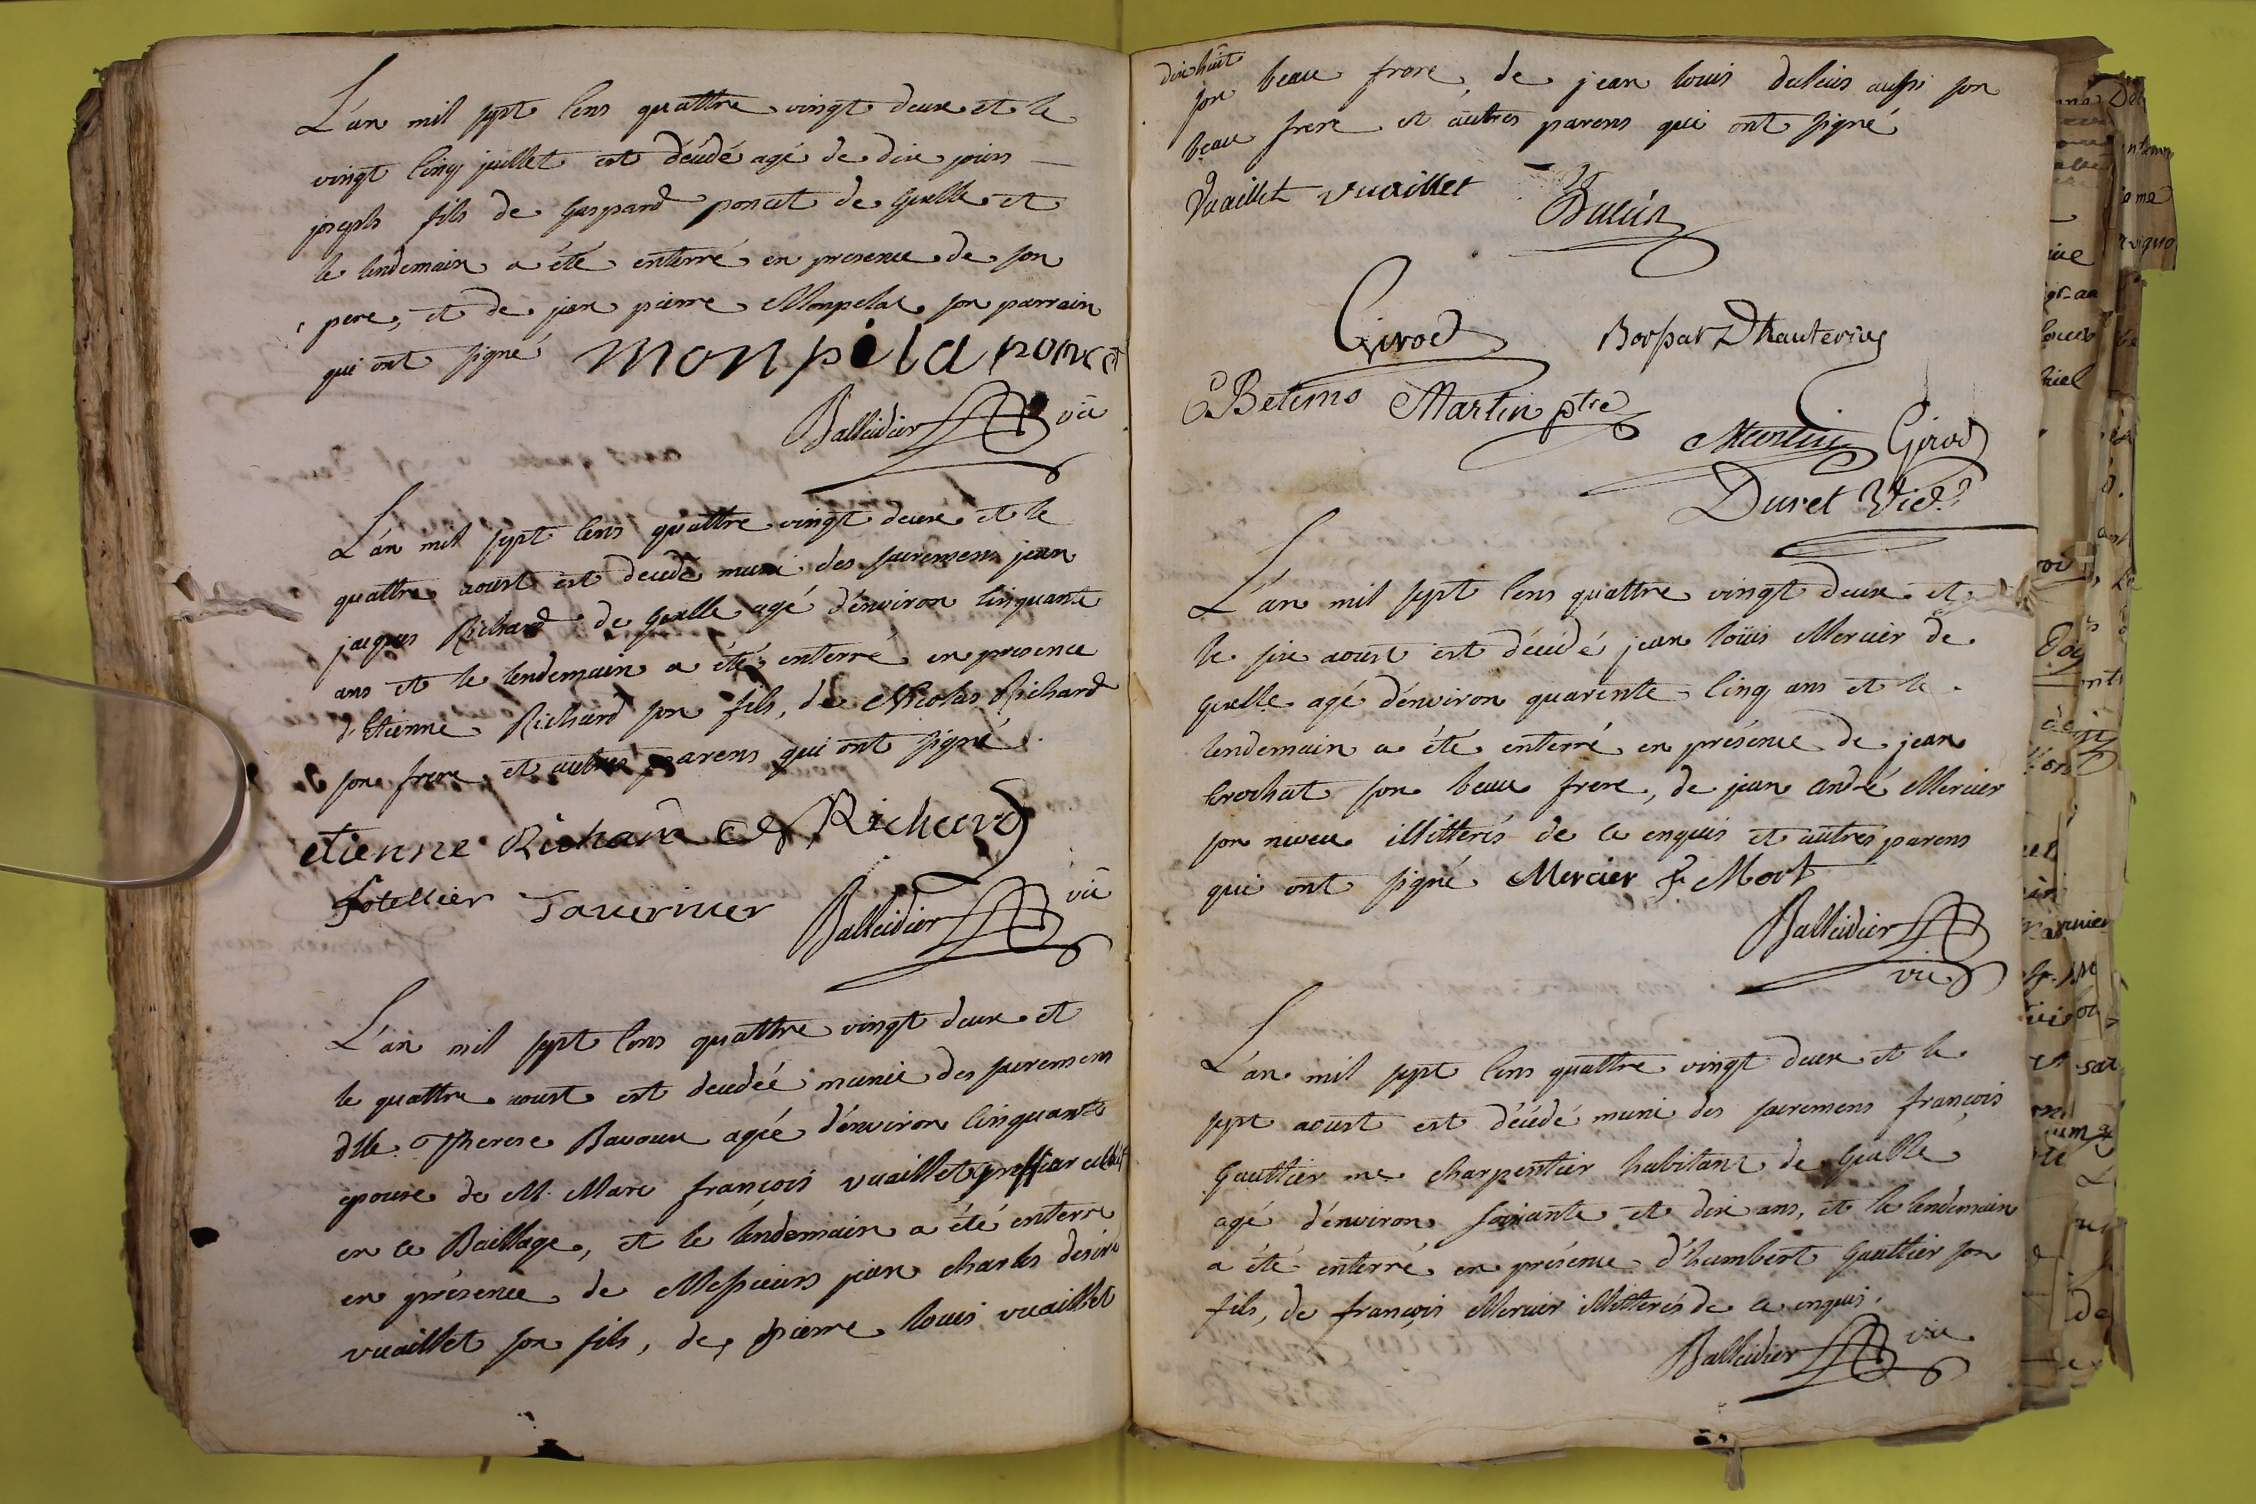 L'an mil sept cens quattre vingt deux et le
vingt cinq juillet est décédé agé de dix jours
joseph fils de Gaspard poncet de Gexlle et
le lendemain a été enterré en presence de son
pere, et de jean pierre Monpelat son parrain
qui ont signé monpela poncet
Balleidier vic
L'an mil sept cens quattre vingt deux et le
quattre aoust est decedé muni des sacremens jean
jacques Richard de Gexlle agé d'environ cinquante
ans et le lendemain a été enterré en presence
d'Etienne Richard son fils, de Nicolas Richard
son frere et autres parens qui ont signé
etienne Richard N Richard
fotellier Tavernier Balleidier vic
L'an mil sept cens quattre vingt deux et
le quattre aoust est decedée munie des sacremens
dlle. Therese Bavoux agée d'environ cinquante
epouse de M. Marc françois vuaillet greffier
en ce Baillage, et le lendemain a été enterré
en présence de Messieurs jean charles desiré
vuaillet son fils, de pierre louis vuaillet
dix huit
son beau frere, de jean louis dulcis aussi son
beau frere et autres parens qui ont signé
Vuaillet vuaillet Dulcis
Girod Borsat Dhauterive
Betems Martin ptre
Martin Girod
Duret Vic.
L'an mil sept cens quattre vingt deux et
le six aoust est décédé jean loüis Mercier de
Gexlle agé d'environ quarente cinq ans et le
lendemain a été enterré en présence de jean
Crochat son beau frere, de jean André Mercier
son neveu illitterés de ce enquis et autres parens
qui ont signé Mercier f. Mort
Balleidier
vic
L'an mil sept cens quattre vingt deux et le
sept aoust est décédé muni des sacremens françois
Gaultier me charpentier habitant de Gexlle
agé d'environ soixante et dix ans, et le lendemain
a été enterré en présence d'humbert Gaultier son
fils, de françois Mercier illitterés de ce enquis.
Balleidier vic